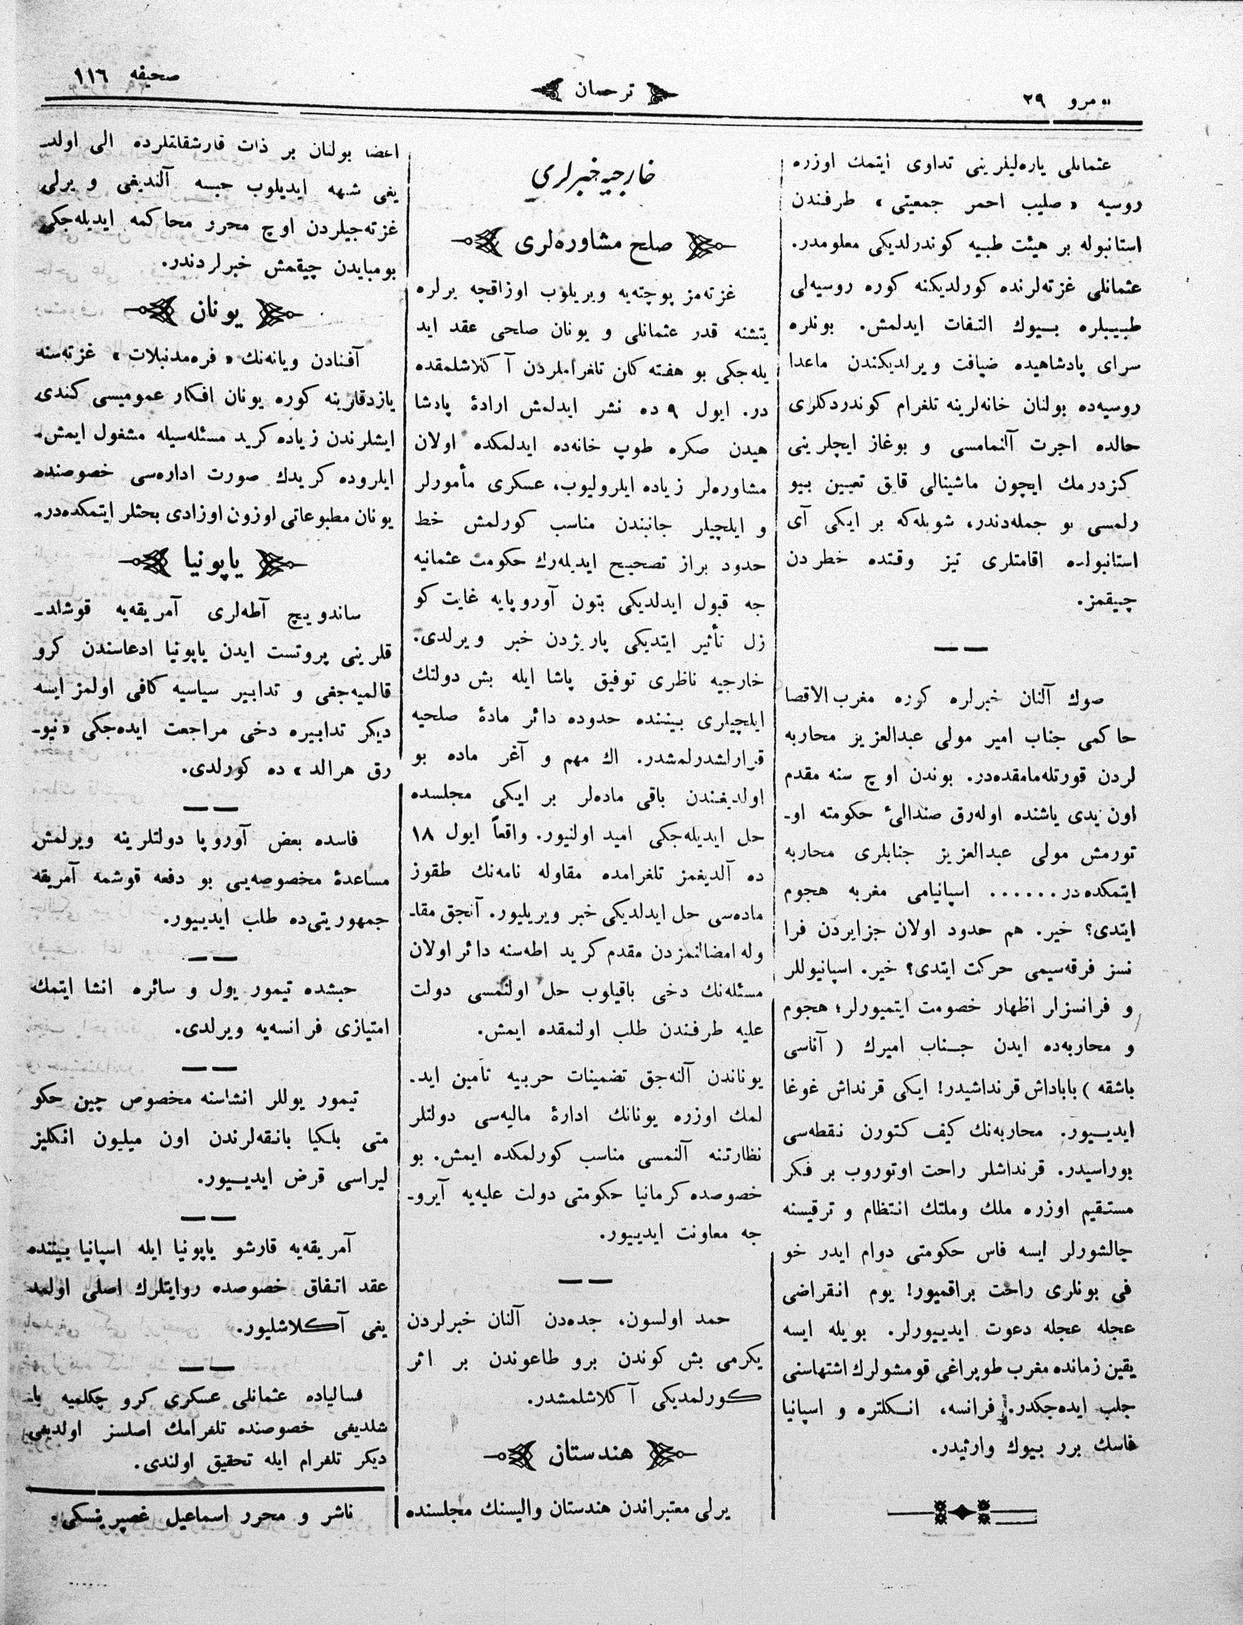 نومرو ٢٩
ترجمان
صحيفه ١١٦
عثمانلی ياره‌ليلرينی تداوی ايتمك اوزره
روسيه «صليب احمر جمعيتی» طرفندن
استانبوله بر هيئت طبيه كوندرلديكی معلومدر.
عثمانلی غزته‌لرنده كورلديكنه كوره روسيه‌لی
طبيبلره بيوك التفات ايدلمش. بونلره
سرای پادشاهيده ضيافت ويرلديكندن ماعدا
روسيه‌ده بولنان خانه‌لرينه تلغرام كوندردكلری
حالده اجرت آلنمامسی و بوغاز ايچلرينی
كزدرمك ايچون ماشينالی قايق تعيين بيو
رلمسی بو جمله‌دندر، شويله‌كه بر ايكی آی
استانبولده اقامتلری تيز وقتده خطردن
چيقمز.
صوك آلنان خبرلره كوره مغرب الاقصا
حاكمی جناب امير مولی عبدالعزيز محاربه
لردن قورتله‌مامقده‌در. بوندن اوچ سنه مقدم
اون يدی ياشنده اوله‌رق صندالیٔ حكومته او-
تورمش مولی عبدالعزيز جنابلری محاربه
ايتمكده‌در...... اسپانيامی مغربه هجوم
ايتدی؟ خير. هم حدود اولان جزايردن فرا
نسز فرقه‌سيمی حركت ايتدی؟ خير. اسپانيوللر
و فرانسزلر اظهار خصومت ايتميورلر؛ هجوم
و محاربه‌ده ايدن جناب اميرك (آناسی
باشقه) باباداش قرنداشيدر! ايكی قرنداش غوغا
ايدييور. محاربه‌نك كيف كتورن نقطه‌سی
بوراسيدر. قرنداشلر راحت اوتوروب بر فكر
مستقيم اوزره ملك وملتك انتظام و ترقيسنه
چالشورلر ايسه فاس حكومتی دوام ايدر خو
فی بونلری راحت براقميور! يوم انقراضی
عجله عجله دعوت ايدييورلر. بويله ايسه
يقين زمانده مغرب طوپراغی قومشولرك اشتهاسنی
جلب ايده‌جكدر. فرانسه، انكلتره و اسپانيا
فاسك برر بيوك وارثيدر.
خارجيه خبرلری
صلح مشاوره‌لری
غزته‌مز پوچته‌يه ويريلوب اوزاقچه يرلره
يتشنه قدر عثمانلی و يونان صلحی عقد ايد
يله‌جكی بو هفته كلن تلغراملردن آكلاشلمقده
در. ايول ٩ ده نشر ايدلمش ارادهٔ پادشا
هيدن صكره طوپ خانه‌ده ايدلمكده اولان
مشاوره‌لر زياده ايلروليوب، عسكری مأمورلر
و ايلچيلر جانبندن مناسب كورلمش خط
حدود براز تصحيح ايديله‌رك حكومت عثمانيه
جه قبول ايدلديكی بتون آوروپايه غايت كو
زل تأثير ايتديكی پاريژدن خبر ويرلدی.
خارجيه ناظری توفيق پاشا ايله بش دولتك
ايلچيلری بيننده حدوده دائر مادهٔ صلحيه
قرارلشدرلمشدر. اك مهم و آغر ماده بو
اولديغندن باقی ماده‌لر بر ايكی مجلسده
حل ايديله‌جكی اميد اولنيور. واقعاً ايول ١٨
ده آلديغمز تلغرامده مقاوله نامه‌نك طقوز
ماده‌سی حل ايدلديكی خبر ويريليور. آنجق مقا-
وله امضالنمزدن مقدم كريد اطه‌سنه دائر اولان
مسئله‌نك دخی باقيلوب حل اولنمسی دولت
عليه طرفندن طلب اولنمقده ايمش.
يوناندن آلنه‌جق تضمينات حربيه تأمين ايد-
لمك اوزره يونانك ادارهٔ ماليه‌سی دولتلر
نظارتنه آلنمسی مناسب كورلمكده ايمش. بو
خصوصده كرمانيا حكومتی دولت عليه‌يه آيرو-
جه معاونت ايدييور.
حمد اولسون، جده‌دن آلنان خبرلردن
يكرمی بش كوندن برو طاعوندن بر اثر
كورلمديكی آكلاشلمشدر.
هندستان
يرلی معتبراندن هندستان واليسنك مجلسنده
اعضا بولنان بر ذات قارشقلقلرده الی اولد-
يغی شبهه ايديلوب حبسه آلنديغی و يرلی
غزته‌جيلردن اوچ محرر محاكمه ايديله‌جكی
بومبايدن چيقمش خبرلردندر.
يونان
آفنادن ويانه‌نك «فره‌مدنبلات» غزته‌سنه
يازدقلرينه كوره يونان افكار عموميسی كندی
ايشلرندن زياده كريد مسئله‌سيله مشغول ايمش.
ايلروده كريدك صورت اداره‌سی خصوصنده
يونان مطبوعاتی اوزون اوزادی بحثلر ايتمكده‌در.
ياپونيا
ساندويچ آطه‌لری آمريقه‌يه قوشلد-
قلرينی پروتست ايدن ياپونيا ادعاسندن كرو
قالميه‌جغی و تدابير سياسيه كافی اولمز ايسه
ديكر تدابيره دخی مراجعت ايده‌جكی «نيو-
رق هرالد» ده كورلدی.
فاسده بعض آوروپا دولتلرينه ويرلمش
مساعدهٔ مخصوصه‌يی بو دفعه قوشمه آمريقه
جمهوريتی‌ده طلب ايدييور.
حبشده تيمور يول و سائره انشا ايتمك
امتيازی فرانسه‌يه ويرلدی.
تيمور يوللر انشاسنه مخصوص چين حكو
متی بلكيا بانقه‌لرندن اون ميليون انكليز
ليراسی قرض ايدييور.
آمريقه‌يه قارشو ياپونيا ايله اسپانيا بيننده
عقد اتفاق خصوصده روايتلرك اصلی اولمد
يغی آكلاشليور.
فساليا‌ده عثمانلی عسكری كرو چكلميه با-
شلديغی خصوصنده تلغرامك اصلسز اولديغی
ديكر تلغرام ايله تحقيق اولندی.
ناشر و محرر اسماعيل غصپرينسكی.